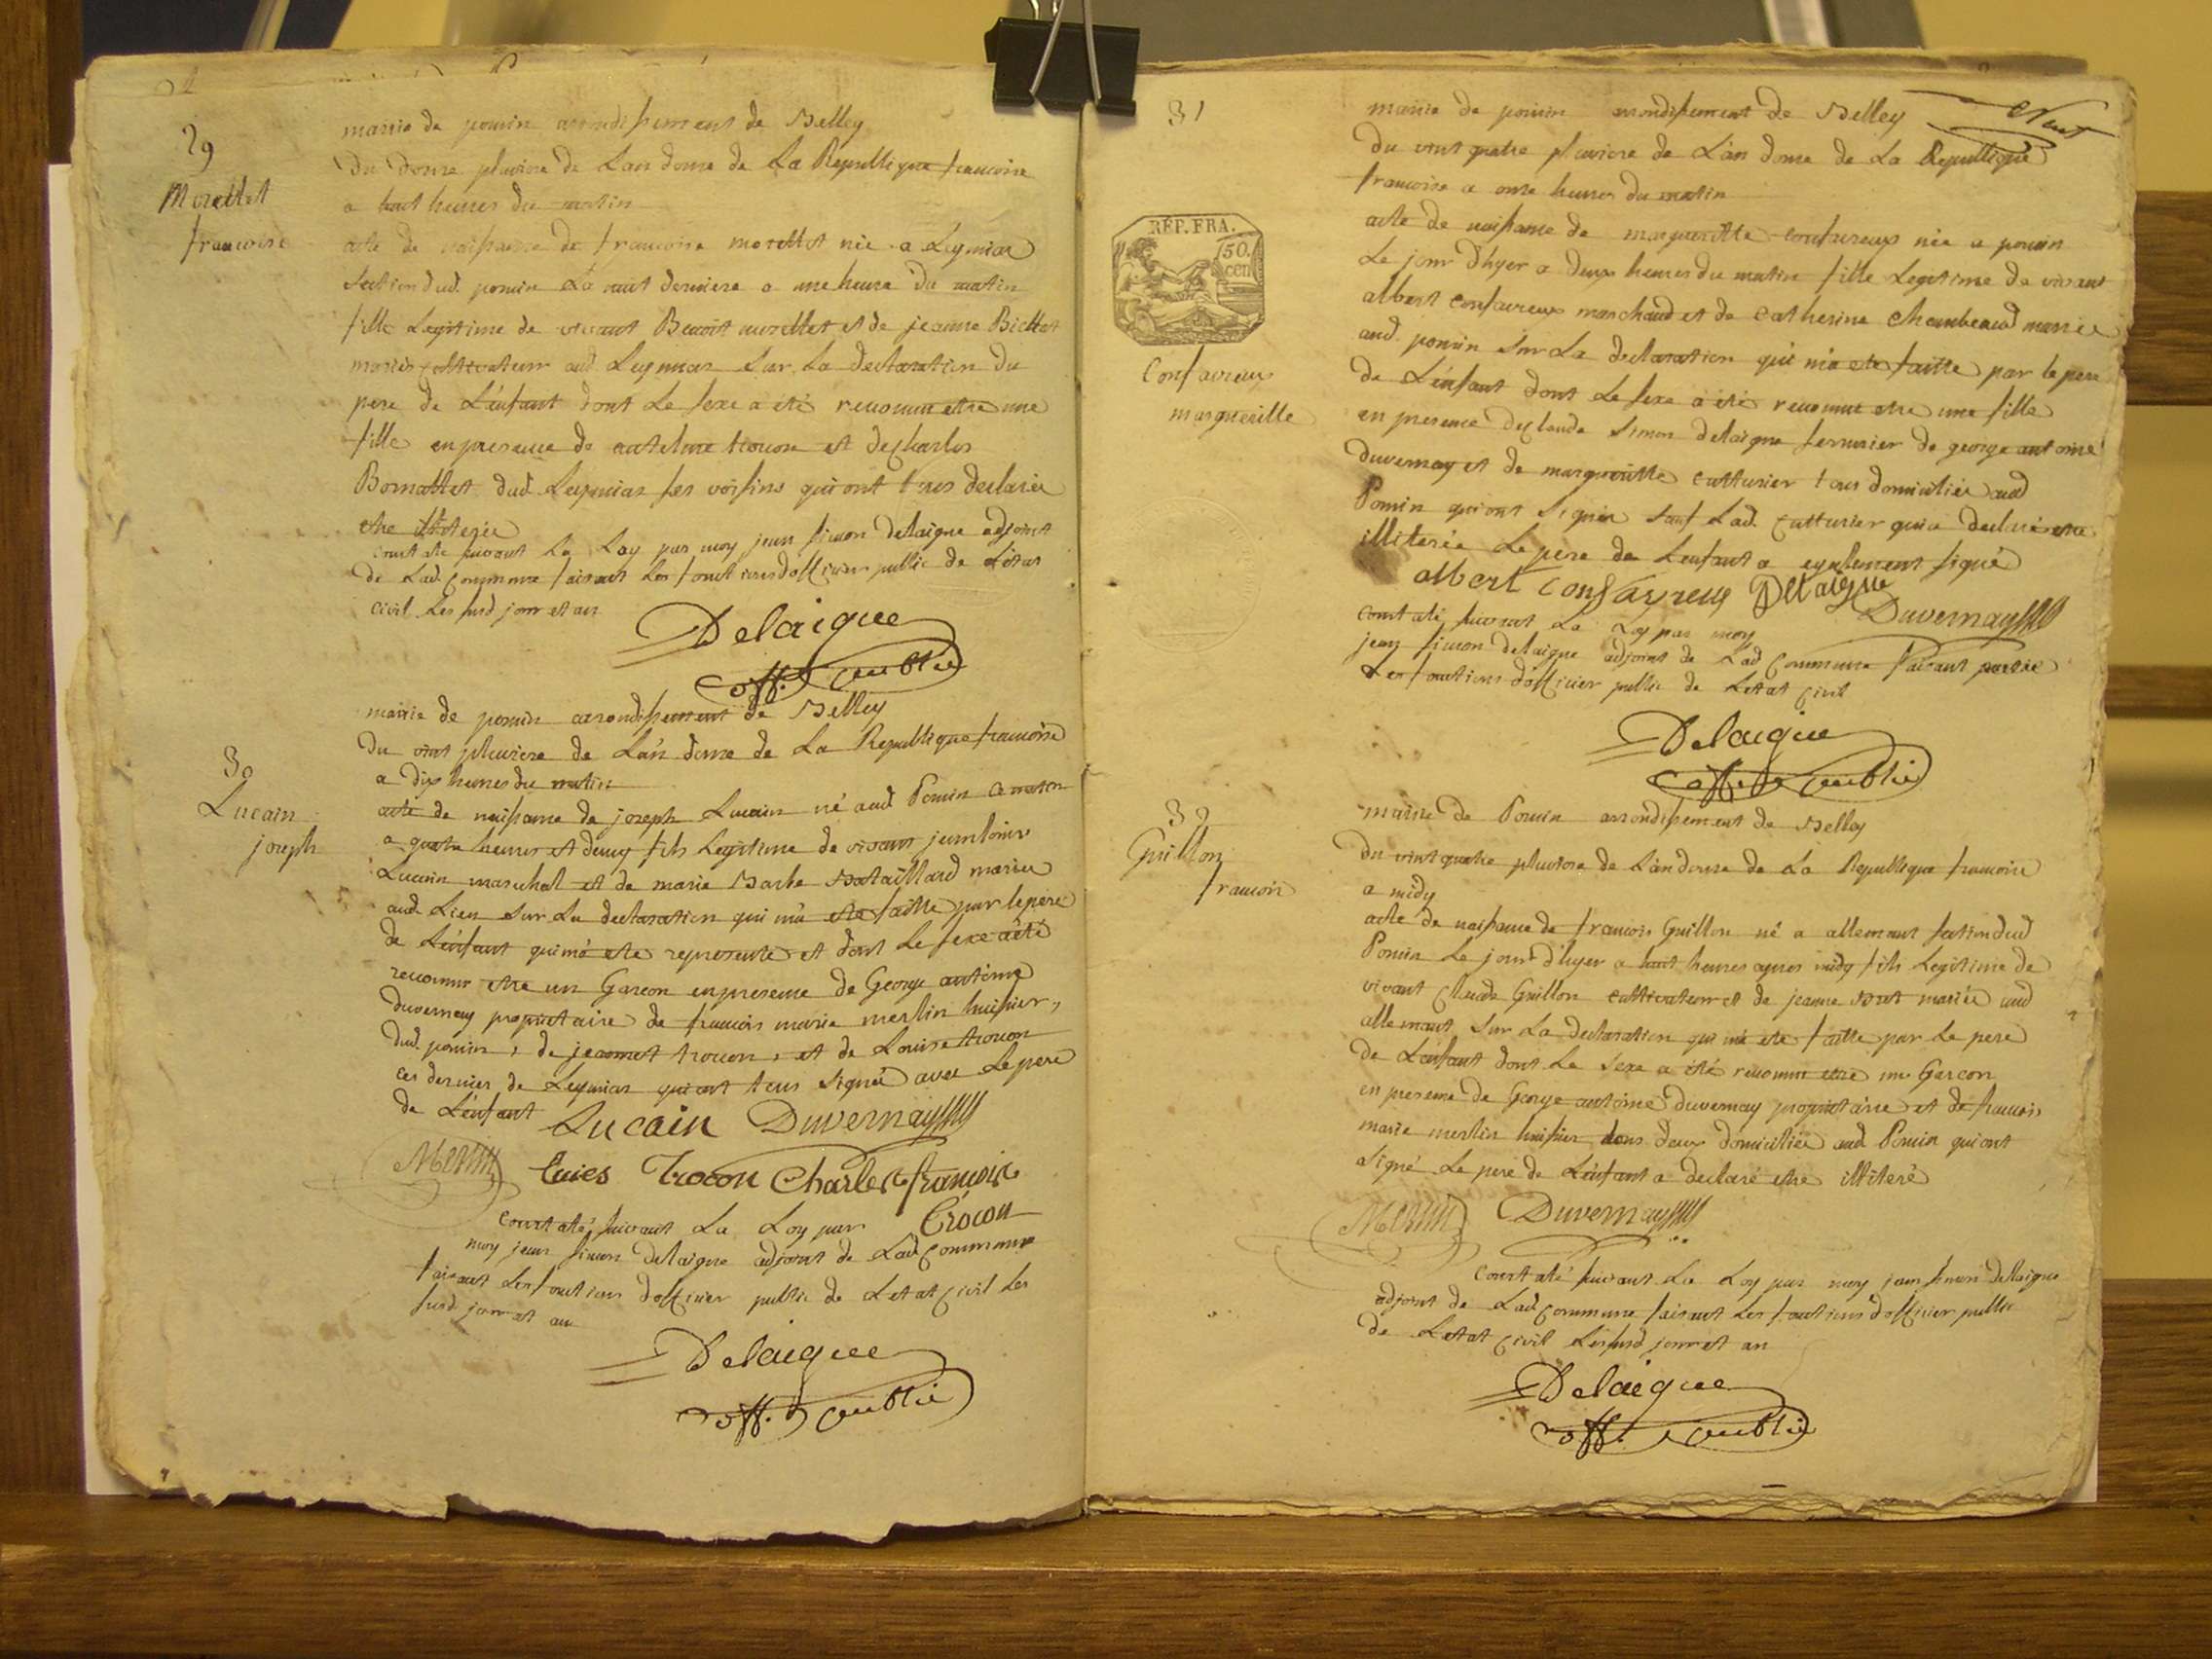 29
Morettet
francoise
mairie de poncin arrondissement de Belley
Du douze pluviose de Lan douze de La Republique francoise
a huit heures du matin
acte de naissance de francoise morettet née a Leymiat
section dud. poncin La nuit derniere a une heure du matin
fille Legitime de vivant Benoit morettet et de jeanne
mariés cultivateur aud Leymiat sur La declaration du
pere de L'enfant dont Le sexe a été reconnu etre une
fille en presence de antelme trocon et de Charles
dud. Leymiat ses voisins qui ont tous declarés
etre
constaté suivant La Loy par moy jean simon delaigue adjoint
de Lad. Commune faisant Les fonctions d'officier public de L'état
civil Les susd jour et an
Delaigue
off. public
30
Lucain
joseph
mairie de poncin arondissement de Belley
Du vint pluviose de L'an douze de La Republique francoise
a dix heures du matin
acte de naissance de joseph Lucain né aud Poncin ce matin
a quatre heures et demy fils Legitime de vivant jean Louis
Lucain marechal et de marie Barbe Bataillard mariés
aud. Lieu sur La declaration qui m'a ete faitte par le pere
de L'enfant qui m'a ete representé et dont Le sexe a été
reconnu etre un Garcon en presence de George antoine
duvernay proprietaire de francois marie merlin huissier,
dud. poncin, de jeannet trocon, et de Louise trocon
ces dernier de Leymiat qui ont tous signés avec Le pere
de L'enfant Lucain Duvernay
Merlin Trocon Charlette francoise
Trocon
constaté suivant La Loy par
moy jean simon delaigue adjoint de Lad. Commune
faisant Les fonctions d'officier public de L'etat Civil Les
susd jour et an
Delaigue
off. public
31
RÉP. FRA.
50.
cen
Confavreux
margueritte
mairie de poncin arondissement de Belley
Du vint quatre pluviose de L'an douze de La Republique
francoise a onze heures du matin
acte de naissance de margueritte confavreux née a poncin
Le jour d'hyer a deux heures du matin fille Legitime de vivant
albert confavreux marchand et de Catherine Chambeaud mariés
aud. poncin sur La declaration qui m'a ete faitte par le pere
de L'enfant dont Le sexe a été reconnu etre une fille
en presence de Claude simon delaigue serrurier de george antoine
Duvernay et de margueritte cutturier tous domiciliés aud
Poncin qui ont signés sauf Lad. Cutturier qui a declaré etre
illiterée Le pere de L'enfant a egalement signé
albert Confavreux Delaigue
Duvernay
constaté suivant La Loy par moy
jean simon delaigue adjoint de Lad Commune faisant
Les fonctions d'officier public de L'etat Civil
Delaigue
off. public
32
Guillon
francois
mairie de Poncin arrondissement de Belley
Du vint quatre pluviose de L'an douze de La Republique francoise
a midy
acte de naissance de francois Guillon né a allement section dud
Poncin Le jour d'hyer a huit heures apres midy fils Legitime de
vivant Claude Guillon cultivateur et de jeanne mariés aud
allement sur La declaration qui m'a ete faitte par Le pere
de L'enfant dont Le sexe a été reconnu etre un Garcon
en presence de George antoine duvernay propriétaire et de francois
marie merlin huissier tous deux domiciliés aud. Poncin qui ont
signé Le pere de L'enfant a declaré etre illiteré
Merlin Duvernay
constaté suivant La Loy par moy jean simon delaigue
adjoint de Lad. Commune faisant Les fonctions d'officier public
de L'etat Civil Les susd jour et an
Delaigue
off. public